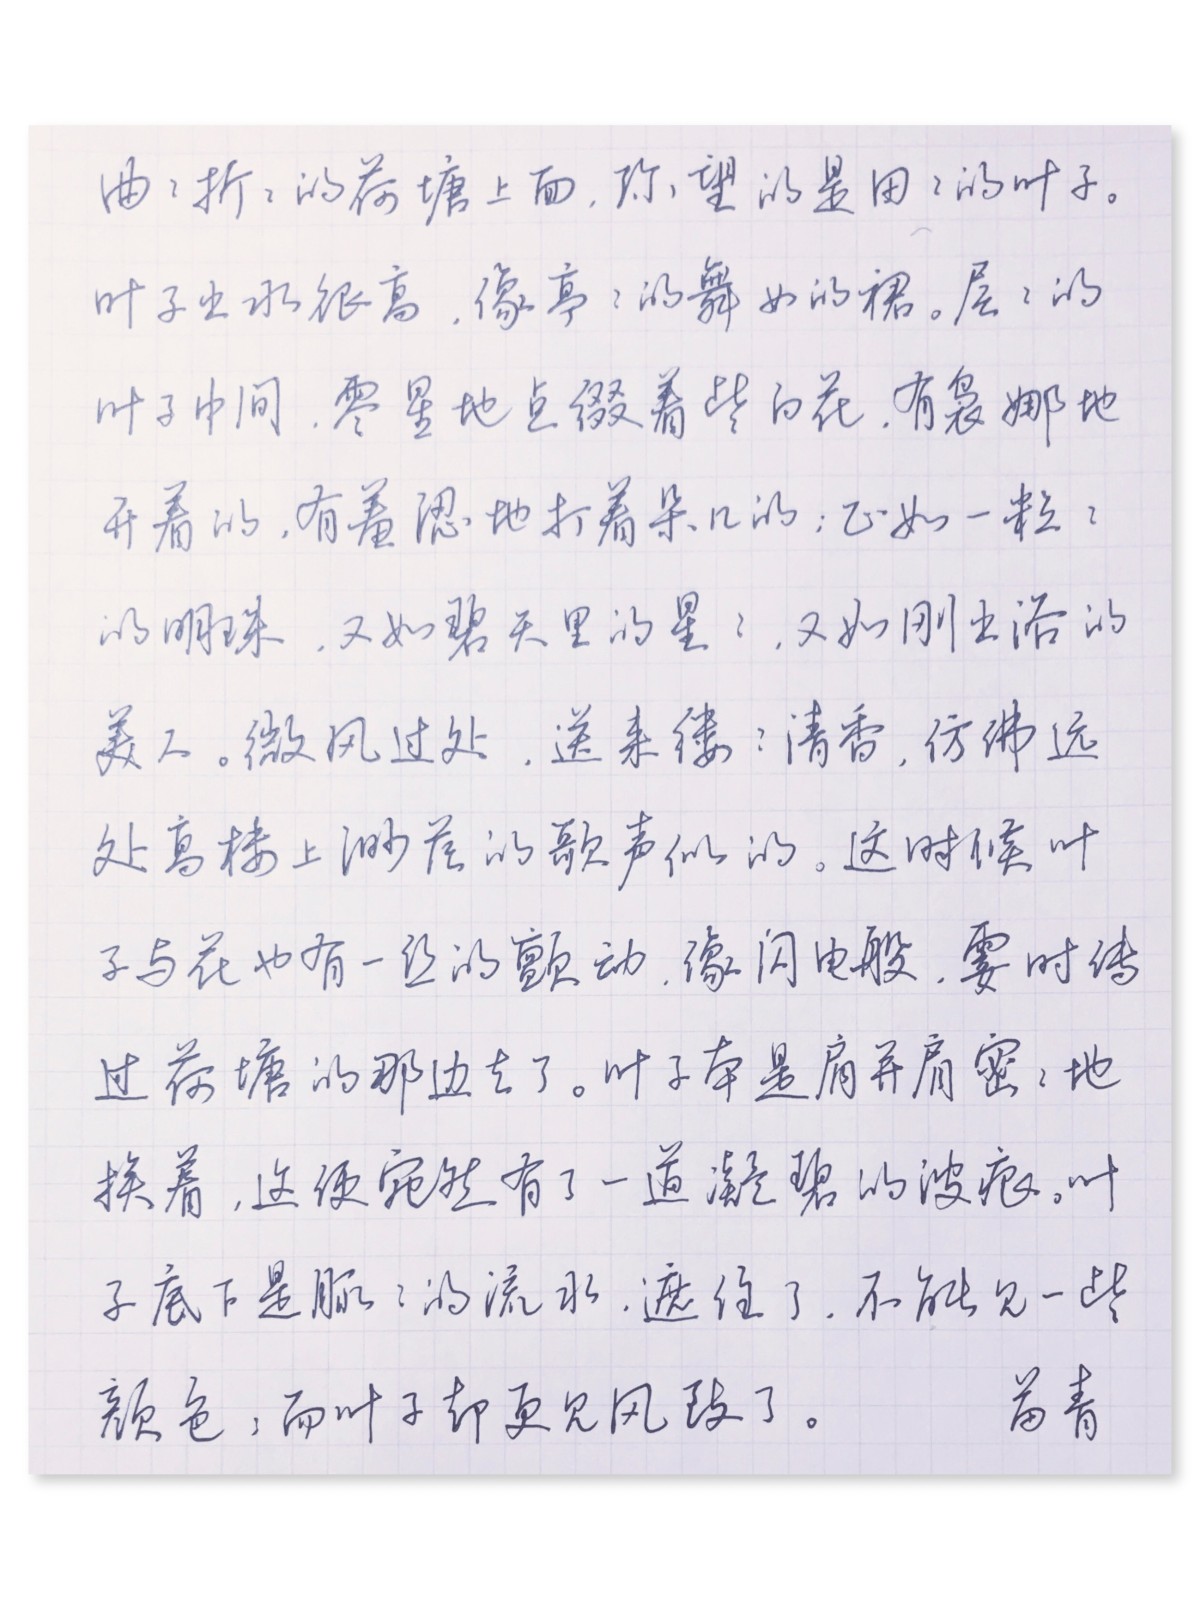 曲々折々的荷塘上面，弥望的是田々的叶子。
叶子出水很高，像亭々的舞女的裙。层々的
叶子中间，零星地点缀着些白花，有袅娜地
开着的，有羞涩地打着朵儿的；正如一粒々
的明珠，又如碧天里的星々，又如刚出浴的
美人。微风过处，送来缕々清香，仿佛远
处高楼上渺茫的歌声似的。这时候叶
子与花也有一丝的颤动，像闪电般，霎时传
过荷塘的那边去了。叶子本是肩并肩密々地
挨着，这便宛然有了一道凝碧的波痕。叶
子底下是脉々的流水，遮住了，不能见一些
颜色；而叶子却更见风致了。 苗青